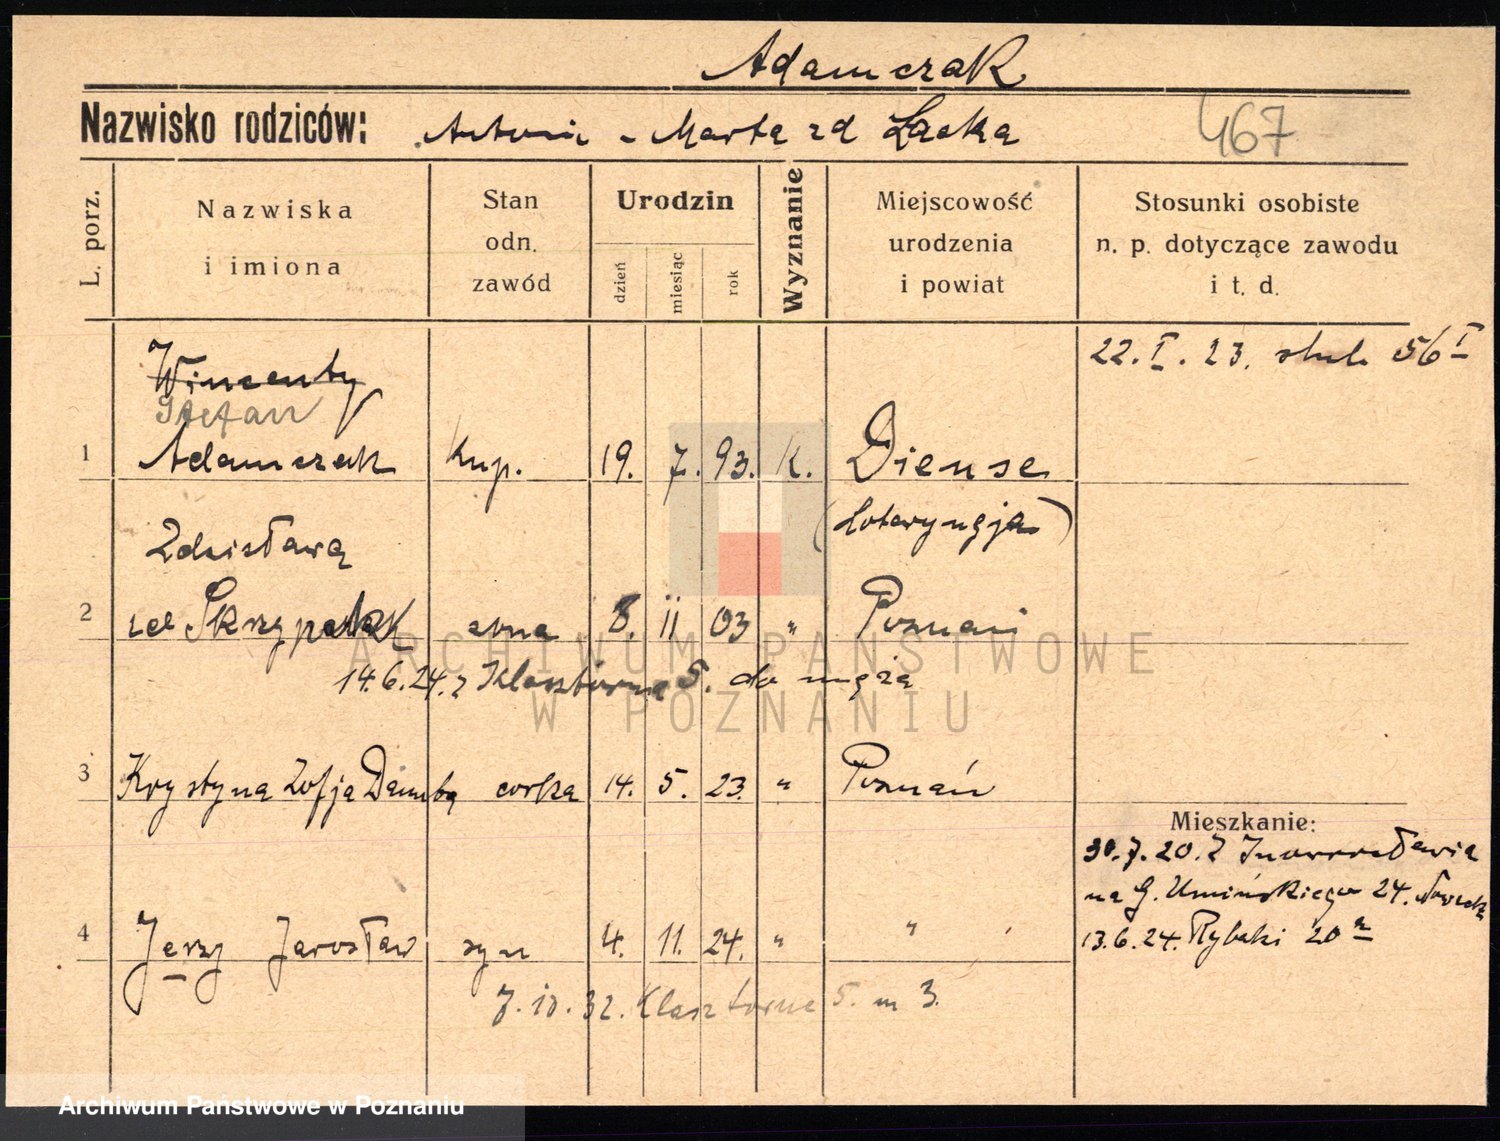 Adamczak
Nazwisko rodziców: Antoni - Marta zd Łacka 467
L. porz.
Nazwiska i imiona
Stan odn. zawód
Urodzin
dzień miesiąc rok
Wyznanie
Miejscowość urodzenia i powiat
Stosunki osobiste n. p. dotyczące zawodu i t. d.
22. I. 23. 56 I
Wincenty
Stefan
1 Adamczak kup. 19. 7. 93. K. Dieuse
(Lotaryngja)
Zdzisława
2 zd Skrzypczak żona 8. II 03 " Poznań
14.6.24. z Klasztorna 5. do męża
3 Krystyna Zofja Danuta corka 14. 5. 23. " Poznań
Mieszkanie:
30.7.20. z Inowrocławia
na G. Umińskiego 24.
13.6.24. Rybaki 20a
4 Jerzy Jarosław syn 4. 11. 24. " "
7.10.32. Klasztorna 5. m 3.
ARCHIWUM PAŃSTWOWE
W POZNANIU
Archiwum Państwowe w Poznaniu